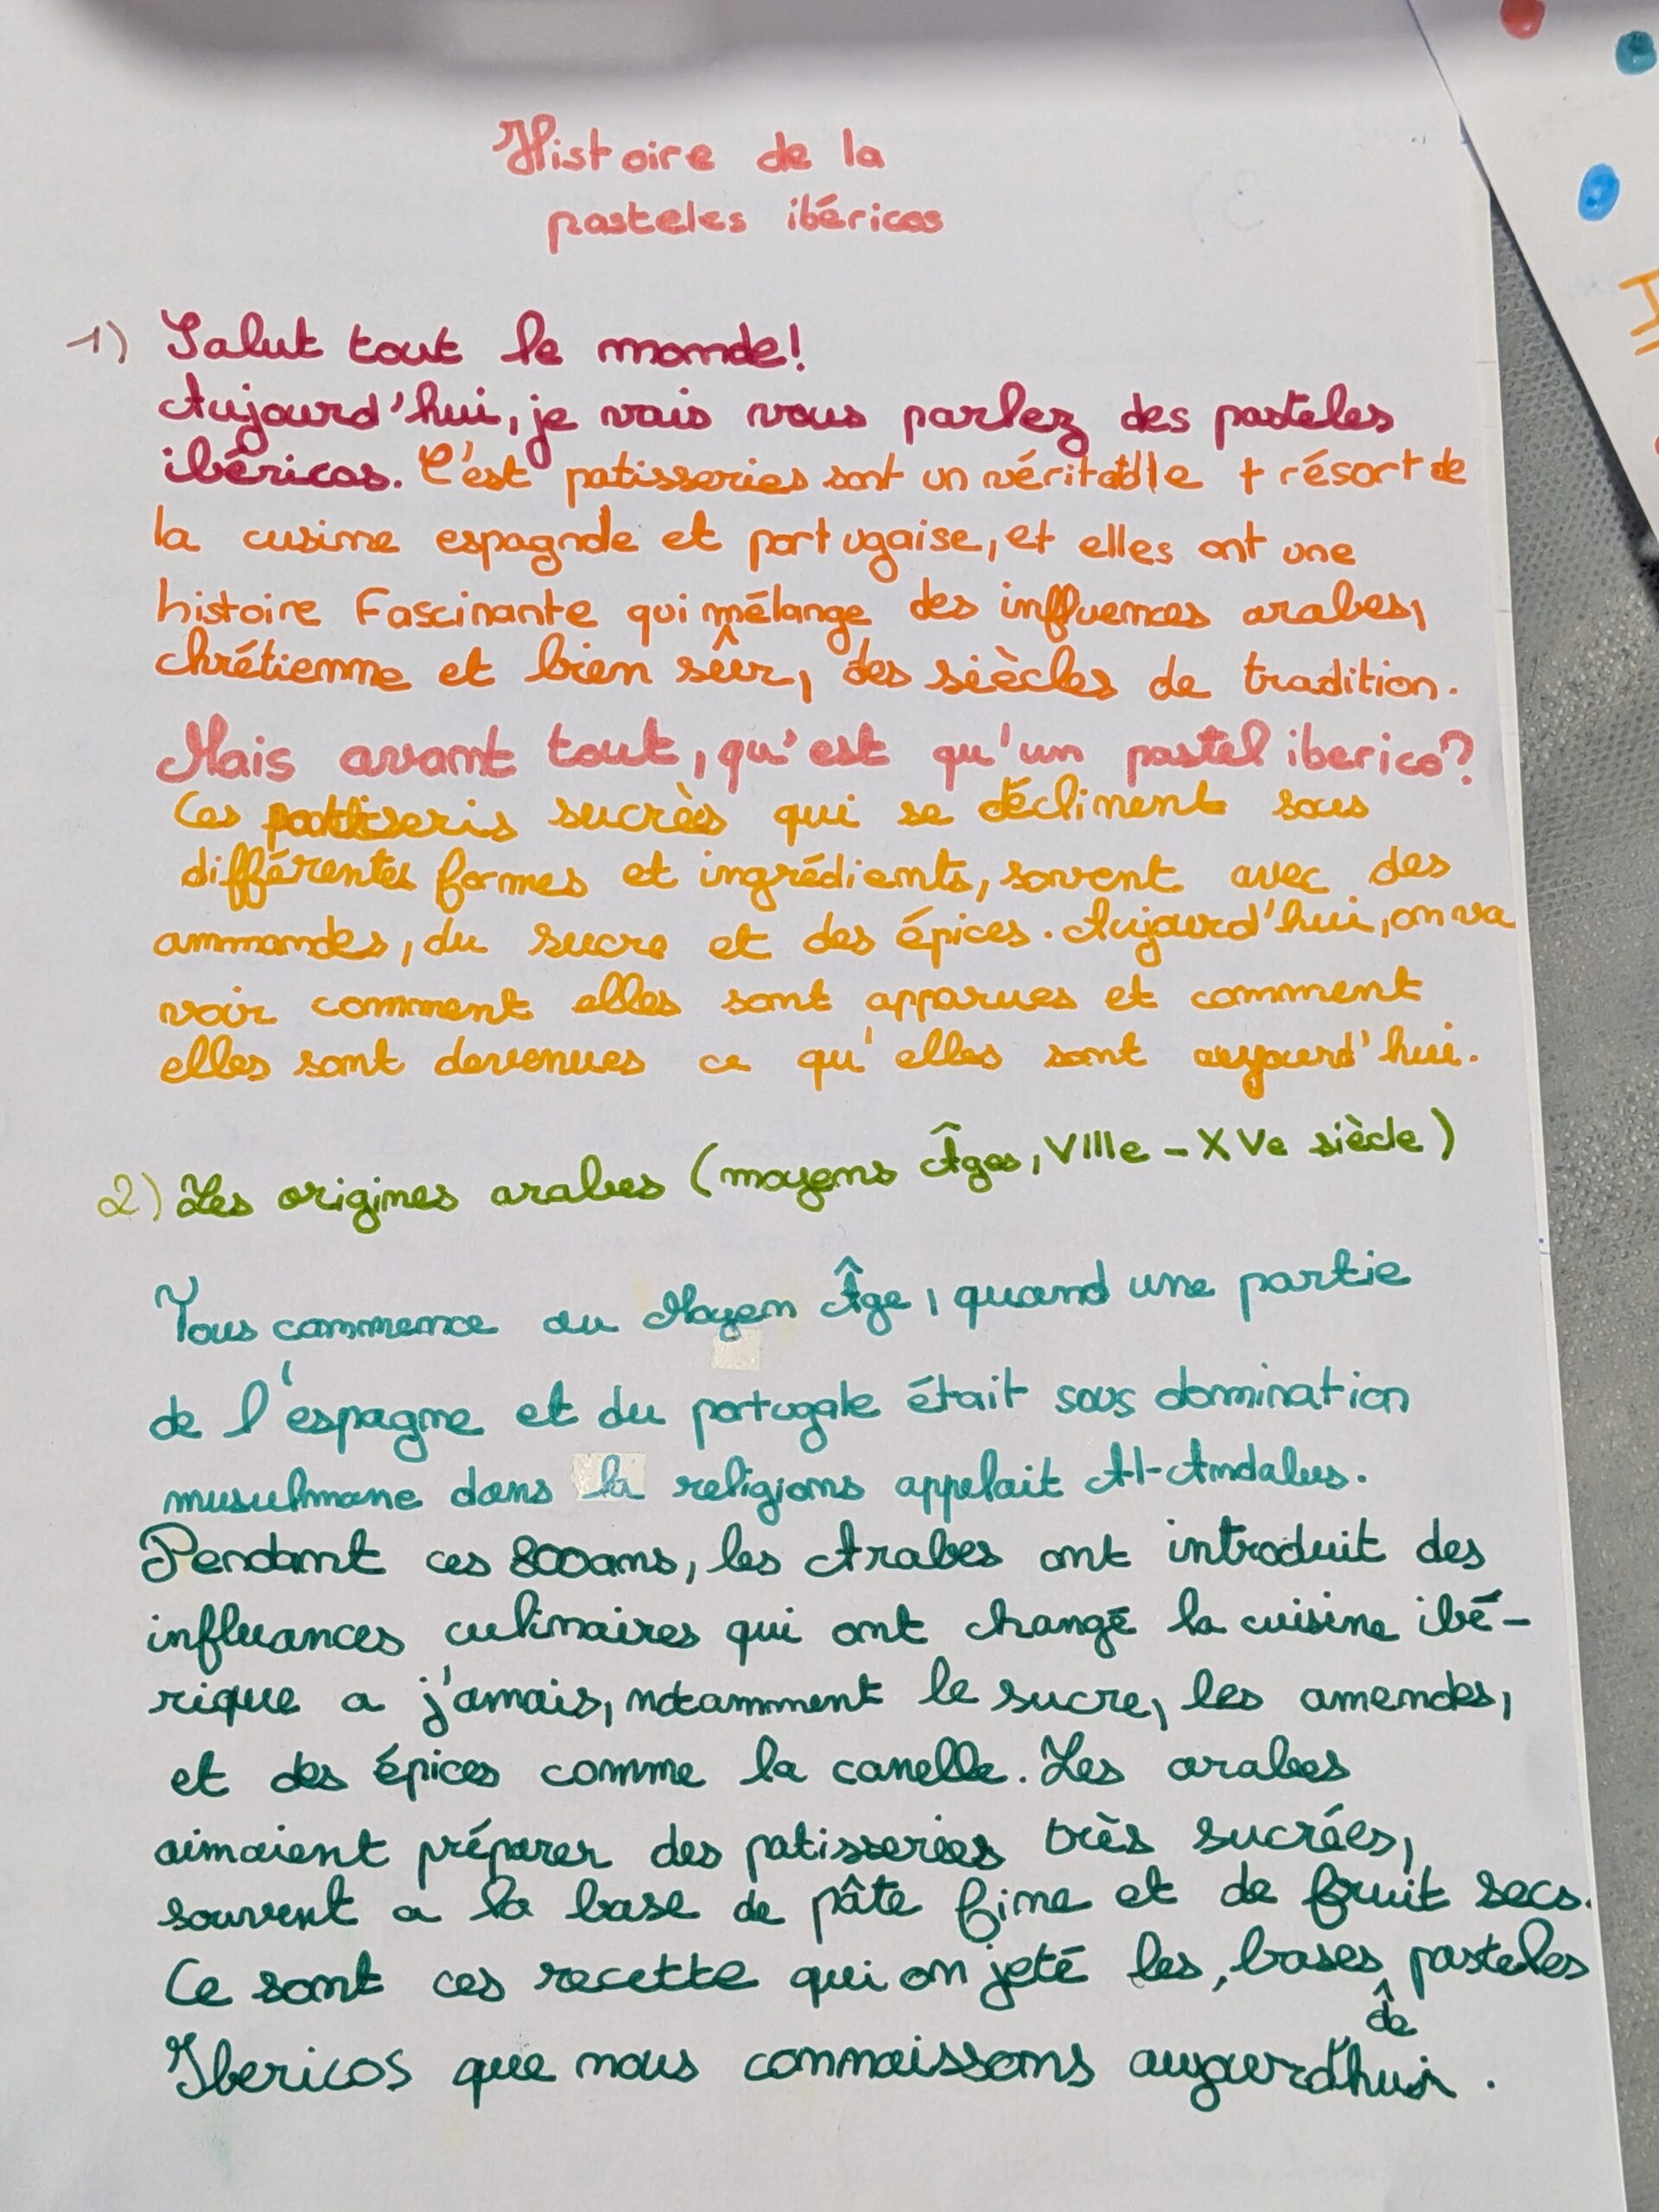 Histoire de la
pasteles ibéricos
1) Salut tout le monde!
Aujourd'hui, je vais vous parlez des pasteles
ibéricos. C'est patisseries sont un véritable trésort de
la cusine espagnole et portugaise, et elles ont une
histoire Fascinante qui mélange des influences arabes,
chrétienne et bien sêûr, des siècles de tradition.
Mais avant tout, qu'est qu'un pastel iberico?
Ces patiseris sucrès qui se déclinent sous
différentes formes et ingrédients, sovent avec des
ammandes, du sucre et des épices. Aujourd'hui, on va
voir comment elles sont apparues et comment
elles sont devenues ce qu'elles sont aujourd'hui.
2) Les origines arabes (moyens Âges, VIIIe - XVe siècle)
Tous commence au Moyen Âge, quand une partie
de l'espagne et du portugale était sous domination
musulmane dans la religions appelait Al-Andalus.
Pendant ces 800ans, les Arabes ont introduit des
influances culinaires qui ont changé la cuisine ibé-
rique a j'amais, notamment le sucre, les amendes,
et des épices comme la canelle. Les arabes
aimaient préparer des patisseries très sucrées,
souvent a la base de pâte fine et de fruit secs.
Ce sont ces recette qui on jeté les, bases pasteles
de
Ibericos que nous connaissons aujourd'hui.